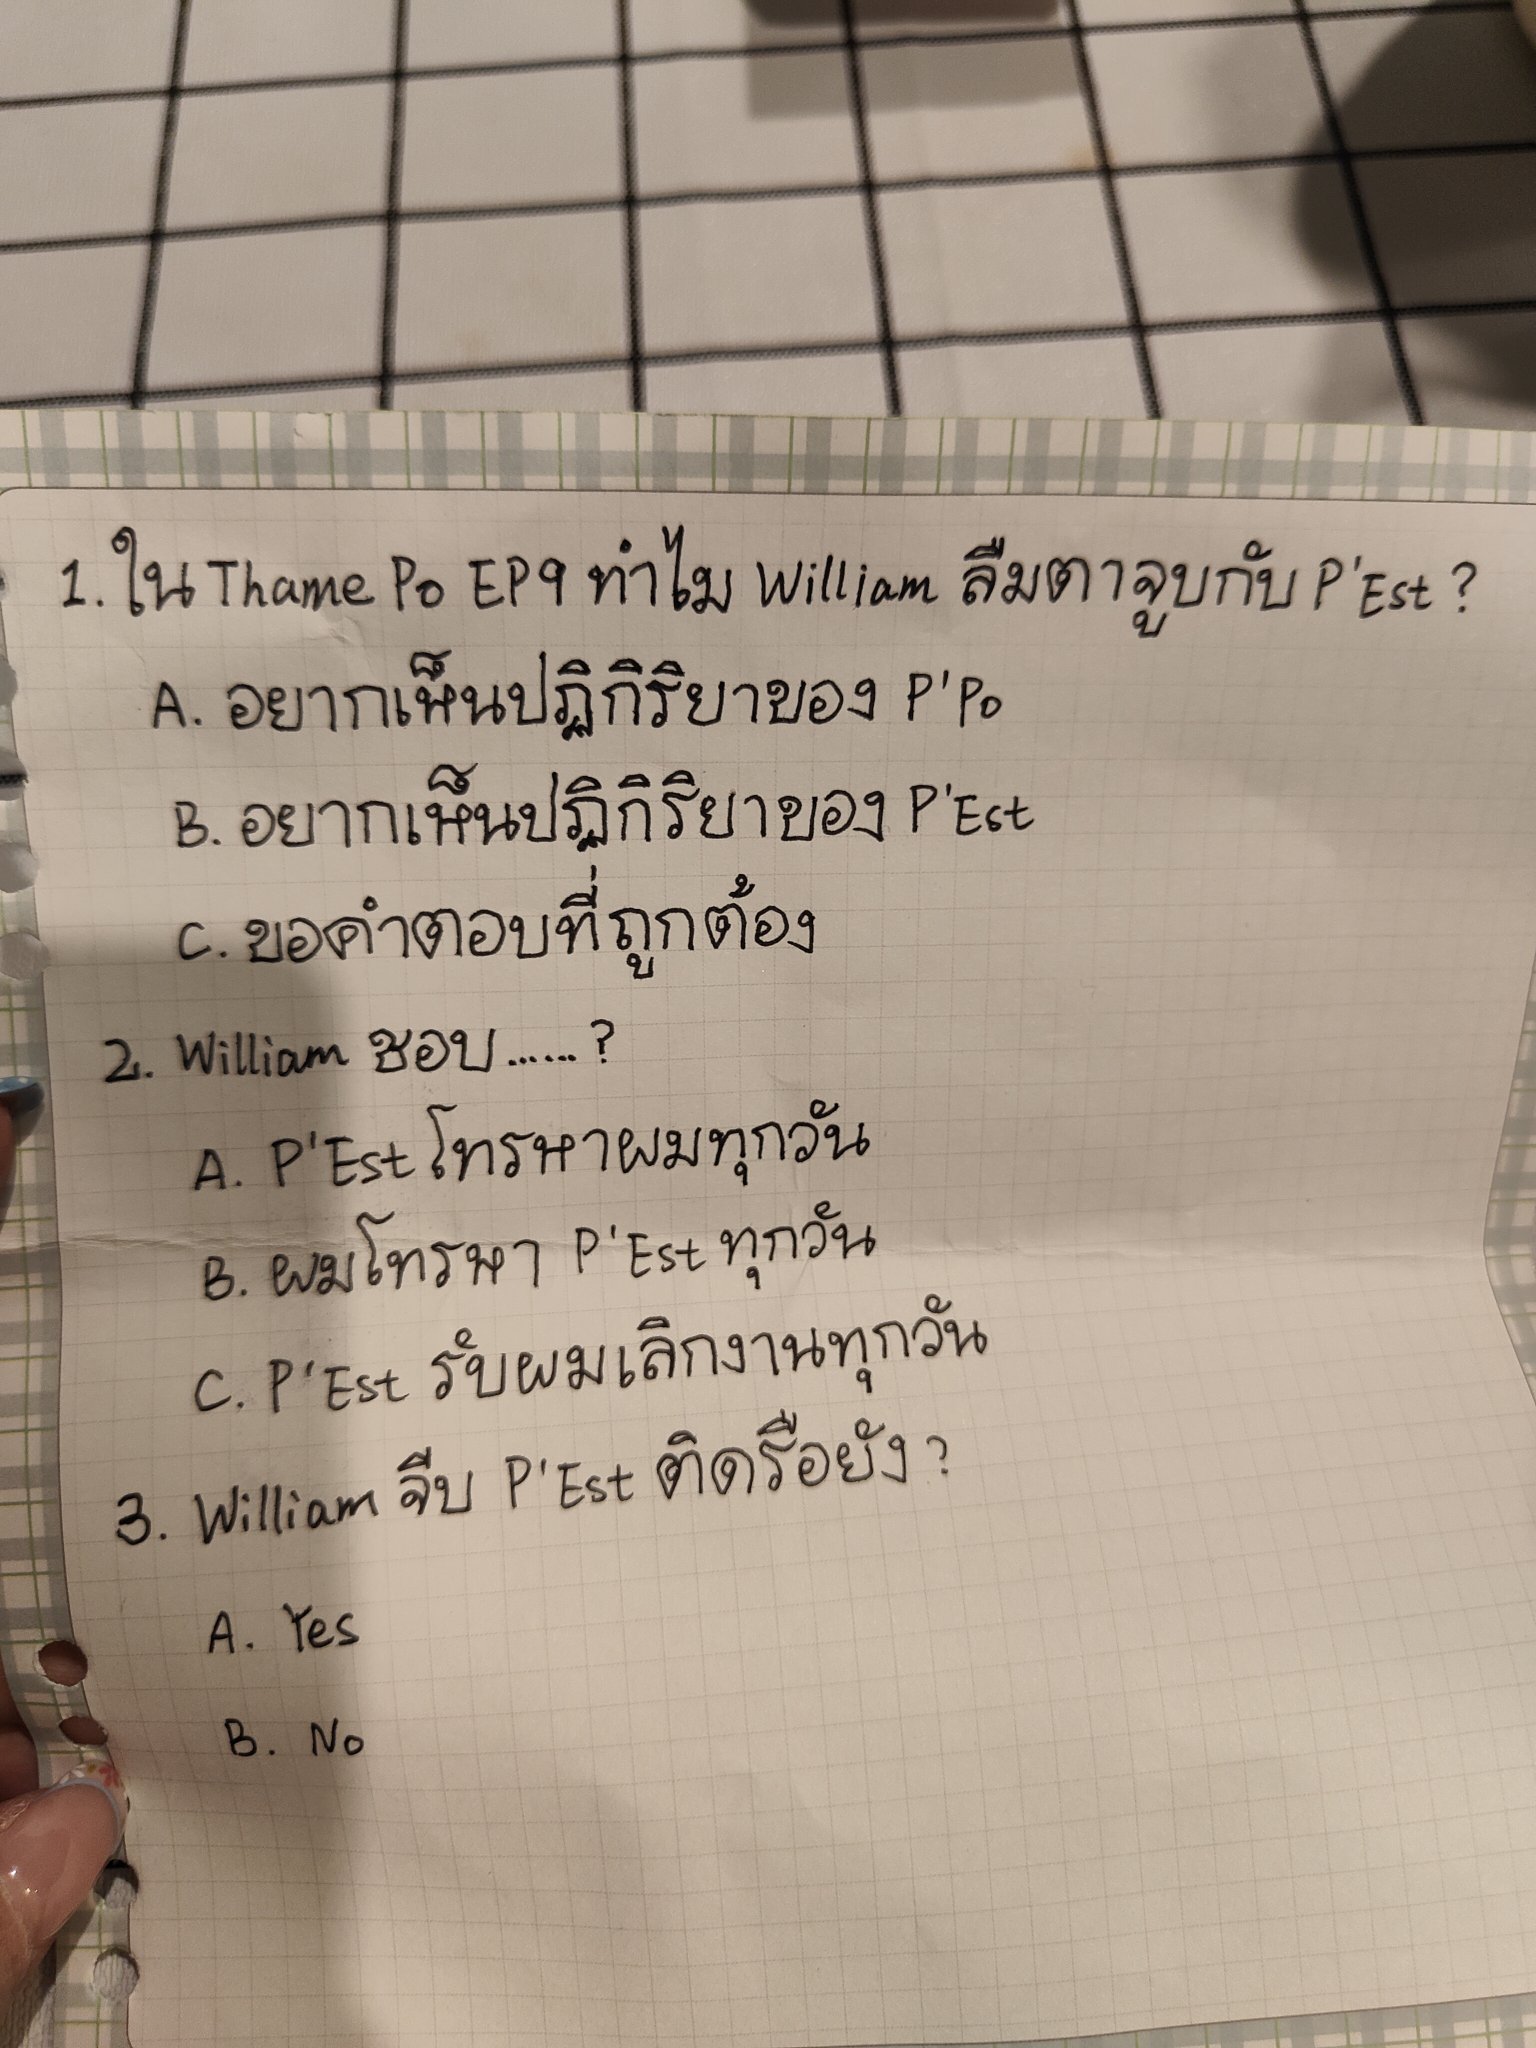 1. ใน Thame Po EP9 ทำไม William ลืมตาจูบกับ P'Est ?
A. อยากเห็นปฏิกิริยาของ P'Po
B. อยากเห็นปฏิกิริยาของ P'Est
C. ขอคำตอบที่ถูกต้อง
2. William ชอบ......?
A. P'Est โทรหาผมทุกวัน
B. ผมโทรหา P'Est ทุกวัน
C. P'Est รับผมเลิกงานทุกวัน
3. William จีบ P'Est ติดรึยัง?
A. Yes
B. No